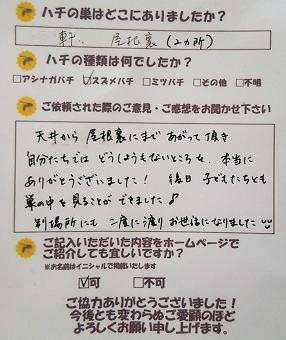 ハチの巣はどこにありましたか?
軒、 屋根裏(2カ所)
ハチの種類は何でしたか?
□アシナガバチ ☑スズメバチ □ミツバチ □その他 □不明
ご依頼された際のご意見・ご感想をお聞かせ下さい
天井から屋根裏にまであがって頂き
自分たちではどうしようもないところを、本当に
ありがとうございました! 後日子どもたちとも
巣の中を見ることができました♪
別場所にも二度に渡りお世話になりました
ご記入いただいた内容をホームページで
ご紹介しても宜しいですか?
※お名前はイニシャルで掲載いたします
☑可 □不可
ご協力ありがとうございました!
今後とも変わらぬご愛顧のほど
よろしくお願い申し上げます。